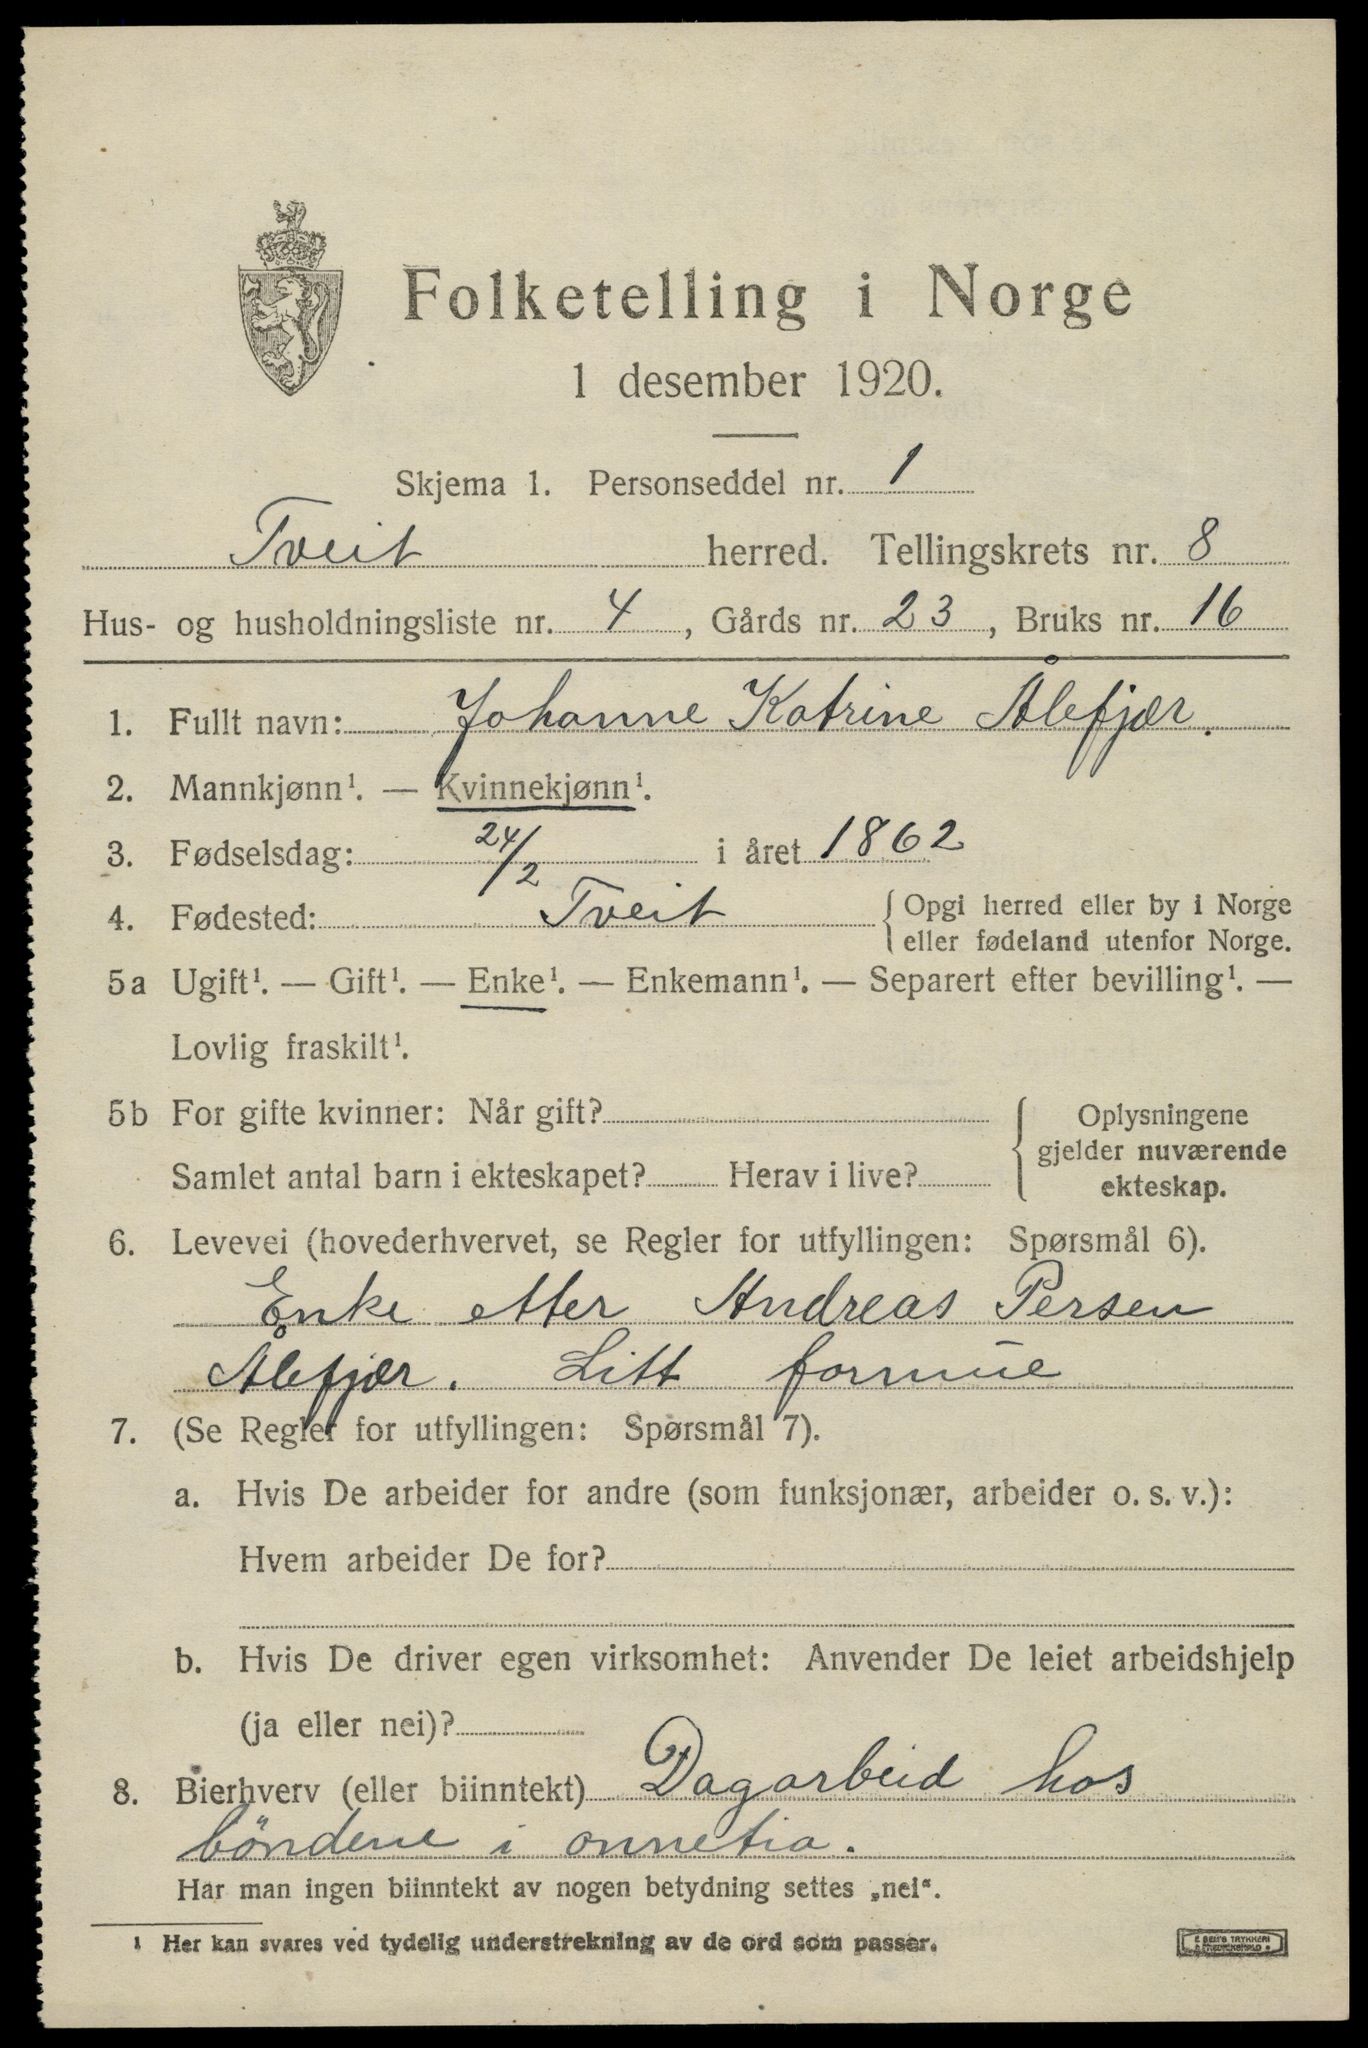 Folketelling i Norge
1 desember 1920.
Skjema 1. Personseddel nr. 1
Tveit herred. Tellingskrets nr. 8
Hus- og husholdningsliste nr. 4, Gårds nr. 23, Bruks nr. 16
1. Fullt navn: Johanne Katrine Ålefjær.
2. Mannkjønn¹. — Kvinnekjønn¹.
3. Fødselsdag: 24/2 i året 1862
4. Fødested: Tveit { Opgi herred eller by i Norge
eller fødeland utenfor Norge.
5a Ugift¹. — Gift¹. — Enke¹. — Enkemann¹. — Separert efter bevilling¹. —
Lovlig fraskilt¹.
5b For gifte kvinner: Når gift?
Samlet antal barn i ekteskapet? Herav i live?
Oplysningene
gjelder nuværende
ekteskap.
6. Levevei (hovederhvervet, se Regler for utfyllingen: Spørsmål 6).
Enke etter Andreas Persen
Ålefjær. Litt formue
7. (Se Regler for utfyllingen: Spørsmål 7).
a. Hvis De arbeider for andre (som funksjonær, arbeider o. s. v.):
Hvem arbeider De for?
b. Hvis De driver egen virksomhet: Anvender De leiet arbeidshjelp
(ja eller nei)?
8. Bierhverv (eller biinntekt) Dagarbeid hos
böndene i onnetia.
Har man ingen biinntekt av nogen betydning settes „nei“.
¹ Her kan svares ved tydelig understrekning av de ord som passer.
E SEM'S TRYKKERI
FREDRIKSHALD